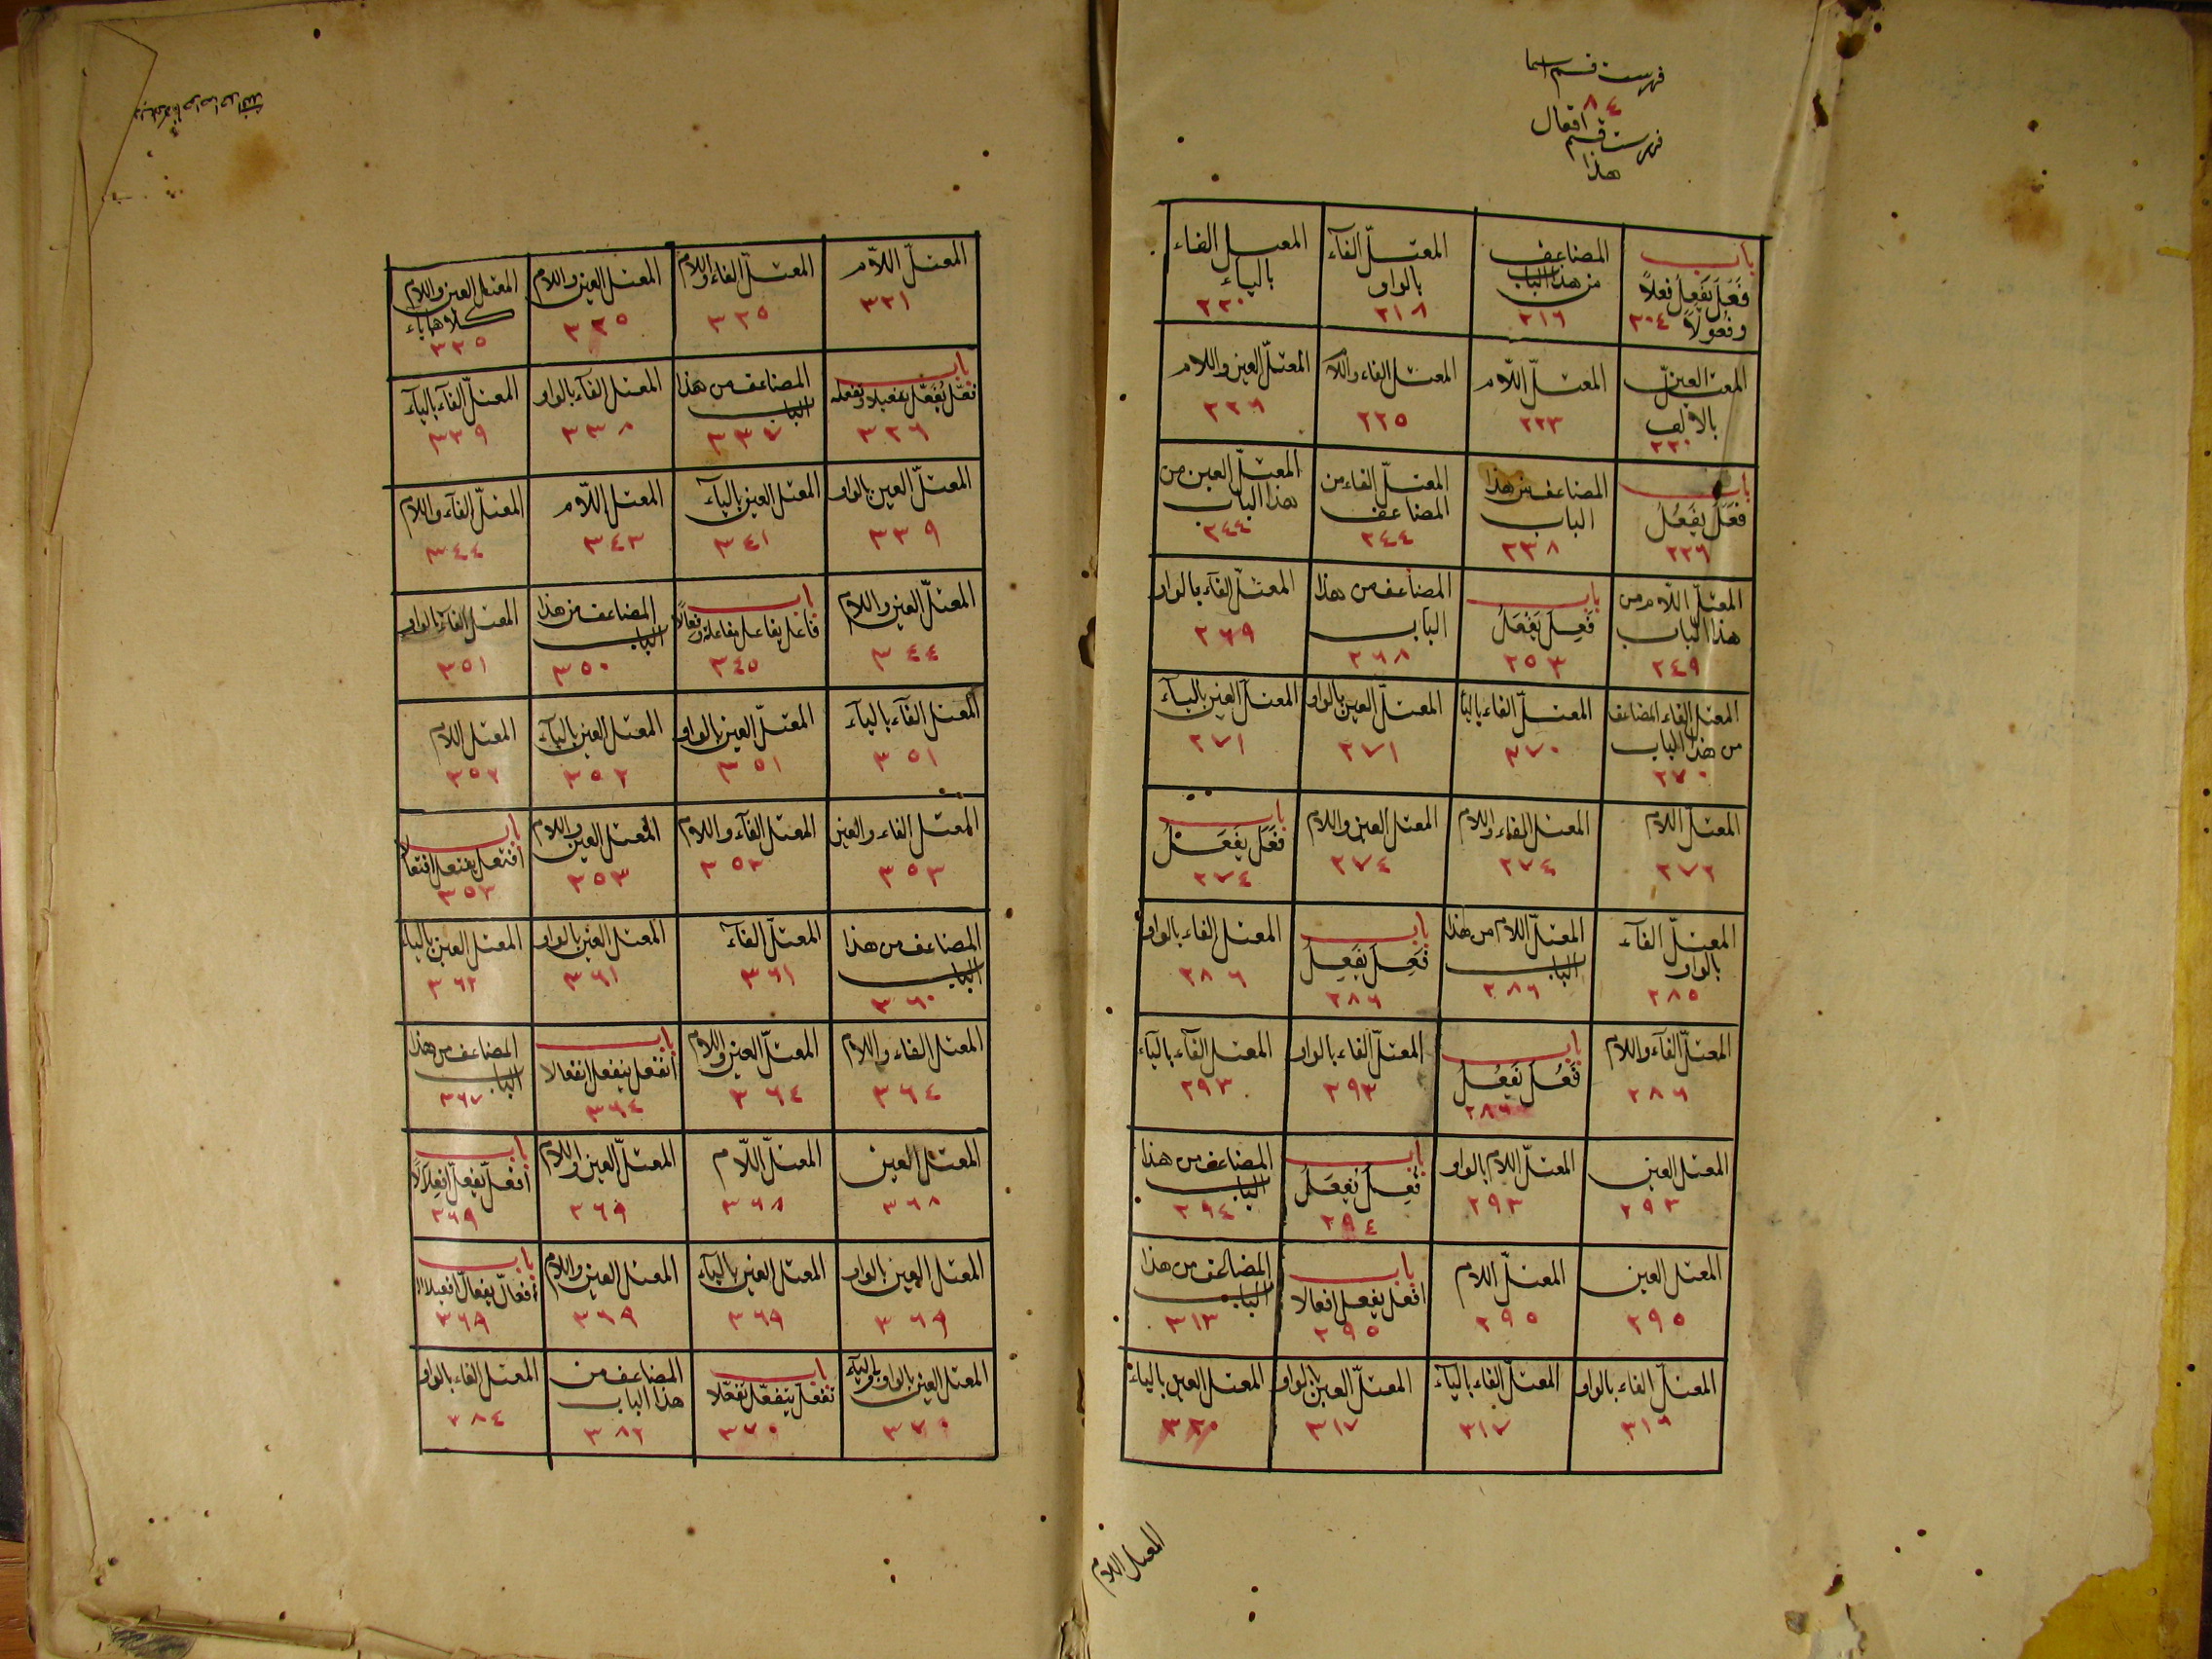 فهرست قسم اسما
٨٤
فهرست قسم افعال
هذا
باب
فَعَلَ يَفْعِلُ فعلاً
وفُعولاً ٢٠٤
المضاعف
من هذا الباب
٢١٦
المعتلّ الفآء
بالواو
٢١٨
المعتل الفاء
بالياء
٢٢٠
المعتلّ العين
بالالف
٢٢٠
المعتلّ اللّام
٢٢٣
المعتل الفاء واللام
٢٢٥
المعتلّ العين واللام
٢٢٦
باب
فَعَلَ يَفْعُلُ
٢٢٦
المضاعف من هذا
الباب
٢٣٨
المعتلّ الفاء من
المضاعف
٢٤٤
المعتلّ العين من
هذا الباب
٢٤٤
المعتلّ اللّام من
هذا الباب
٢٤٩
باب
فَعِلَ يَفْعَلُ
٢٥٣
المضاعف من هذا
الباب
٢٦٨
المعتلّ الفآء بالواو
٢٦٩
المعتل الفاء المضاعف
من هذا الباب
٢٧٠
المعتلّ الفاء باليا
٢٧٠
المعتلّ العين بالواو
٢٧١
المعتلّ العين باليآء
٢٧١
المعتلّ اللام
٢٧٢
المعتل الفاء واللام
٢٧٤
المعتل العين واللام
٢٧٤
باب
فَعَلَ يَفْعَلُ
٢٧٤
المعتلّ الفآء
بالواو
٢٨٥
المعتلّ اللام من هذا
الباب
٢٨٦
باب
فَعِلَ يَفْعِلُ
٢٨٦
المعتل الفاء بالواو
٢٨٦
المعتلّ الفآء واللام
٢٨٦
باب
فَعُلَ يَفْعُلُ
٢٨٦
المعتلّ الفاء بالواو
٢٩٣
المعتل الفآء باليآء
٢٩٣
المعتل العين
٢٩٣
المعتلّ اللام بالواو
٢٩٣
باب
فُعِلَ يُفْعَلُ
٢٩٤
المضاعف من هذا
الباب
٢٩٤
المعتل العين
٢٩٥
المعتلّ اللام
٢٩٥
باب
افعل يفعل افعالا
٢٩٥
المضاعف من هذا
الباب
٣١٣
المعتلّ الفاء بالواو
٣١٦
المعتلّ الفاء باليآء
٣١٧
المعتلّ العين بالواو
٣١٧
المعتل العين بالياء
٣٢٠
المعتل اللام
المعتلّ اللّام
٣٢١
المعتلّ الفاء واللام
٣٢٥
المعتل العين واللام
٣٢٥
المعتل العين واللام
كلاهما ياء
٣٢٥
باب
فعّل يُفَعّل تفعيلا وتفعلة
٣٢٦
المضاعف من هذا
الباب
٣٣٧
المعتل الفآء بالواو
٣٣٨
المعتلّ الفآء باليآء
٣٣٩
المعتلّ العين بالواو
٣٣٩
المعتل العين باليآء
٣٤١
المعتل اللّام
٣٤٣
المعتلّ الفآء واللام
٣٤٤
المعتلّ العين واللام
٣٤٤
باب
فاعل يفاعل مفاعلة وفعالاً
٣٤٥
المضاعف من هذا
الباب
٣٥٠
المعتل الفآء بالواو
٣٥١
المعتل الفآء باليآء
٣٥١
المعتلّ العين بالواو
٣٥١
المعتل العين باليآء
٣٥٢
المعتل اللام
٣٥٢
المعتل الفاء والعين
٣٥٣
المعتل الفآء واللام
٣٥٣
المعتل العين واللام
٣٥٣
باب
افتعل يفتعل افتعالا
٣٥٣
المضاعف من هذا
الباب
٣٦٠
المعتلّ الفآء
٣٦١
المعتل العين بالواو
٣٦١
المعتل العين بالياء
٣٦٢
المعتل الفاء واللام
٣٦٤
المعتلّ العين واللام
٣٦٤
باب
انفعل ينفعل انفعالا
٣٦٤
المضاعف من هذا
الباب
٣٦٧
المعتل العين
٣٦٨
المعتلّ اللّام
٣٦٨
المعتلّ العين واللام
٣٦٩
باب
افعلّ يفعلّ افعلالاً
٣٦٩
المعتل العين بالواو
٣٦٩
المعتل العين باليآء
٣٦٩
المعتل العين واللام
٣٦٩
باب
افعالّ يفعالّ افعيلالا
٣٦٩
المعتل العين بالواو واليآء
٣٧٠
باب
تفعل يتفعّل تفعّلا
٣٧٠
المضاعف من
هذا الباب
٣٨٢
المعتل الفاء بالواو
٣٨٤